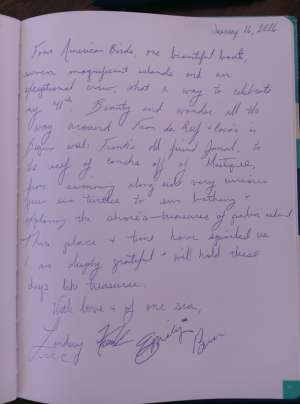 January 16, 2026
Four American Birds, one beautiful boat,
seven magnificent islands and an
exceptional crew, what a way to celebrate
my 45th. Beauty and wonder all the
way around. From da Reef
Bequia with Frank's old friend
the reef of conchs off of Mustique,
from swimming along side very curious
green sea turtles to sun bathing +
exploring the shores treasures of palm island
This place + time have
I am deeply grateful + will hold these
days like treasure.
With love + of one sea,
Lindsay Emily